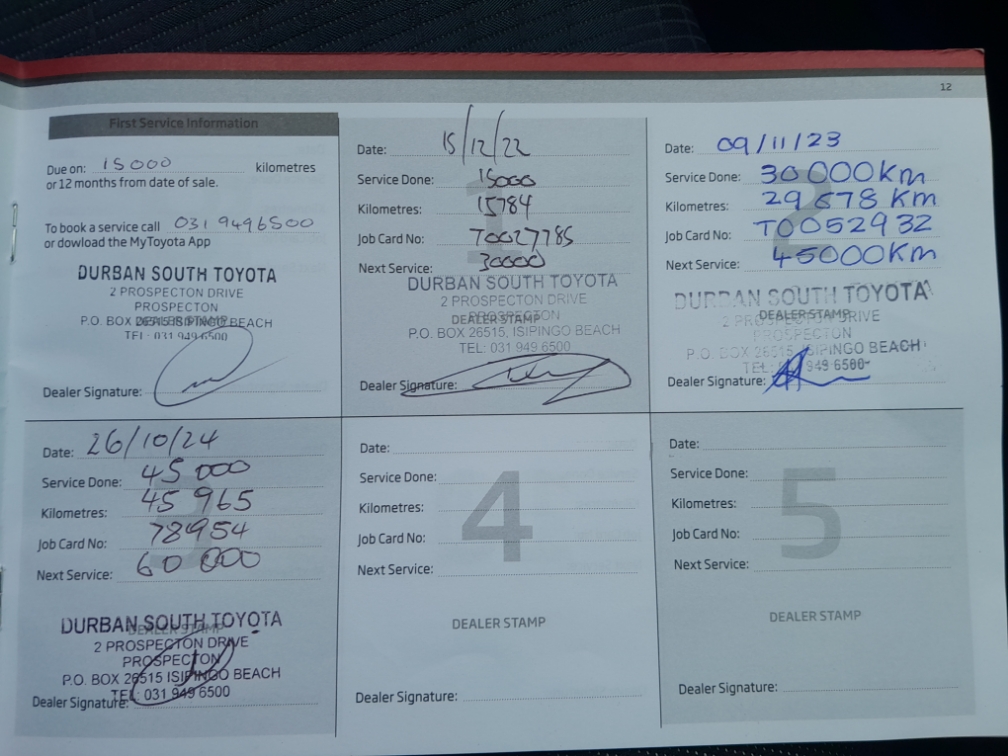 12
First Service Information
Due on: 15000 kilometres
or 12 months from date of sale.
To book a service call 031 9496500
or dowload the MyToyota App
DURBAN SOUTH TOYOTA
2 PROSPECTON DRIVE
PROSPECTON
P.O. BOX 26515 ISIPINGO BEACH
DEALER STAMP
TEL: 031 949 6500
Dealer Signature:
Date: 15/12/22
Service Done: 15000
Kilometres: 15784
Job Card No: T0027785
Next Service: 30000
1
DURBAN SOUTH TOYOTA
2 PROSPECTON DRIVE
PROSPECTON
DEALER STAMP
P.O. BOX 26515, ISIPINGO BEACH
TEL: 031 949 6500
Dealer Signature:
Date: 09/11/23
Service Done: 30000KM
Kilometres: 29678 KM
Job Card No: T0052932
Next Service: 45000KM
2
DURBAN SOUTH TOYOTA
2 PROSPECTON DRIVE
DEALER STAMP
PROSPECTON
P.O. BOX 26515, ISIPINGO BEACH
TEL: 949 6500
Dealer Signature:
Date: 26/10/24
Service Done: 45 000
Kilometres: 45 965
Job Card No: 78954
Next Service: 60 000
3
DURBAN SOUTH TOYOTA
DEALER STAMP
2 PROSPECTON DRIVE
PROSPECTON
P.O. BOX 26515 ISIPINGO BEACH
TEL: 031 949 6500
Dealer Signature:
Date:
Service Done:
Kilometres:
Job Card No:
Next Service:
4
DEALER STAMP
Dealer Signature:
Date:
Service Done:
Kilometres:
Job Card No:
Next Service:
5
DEALER STAMP
Dealer Signature: